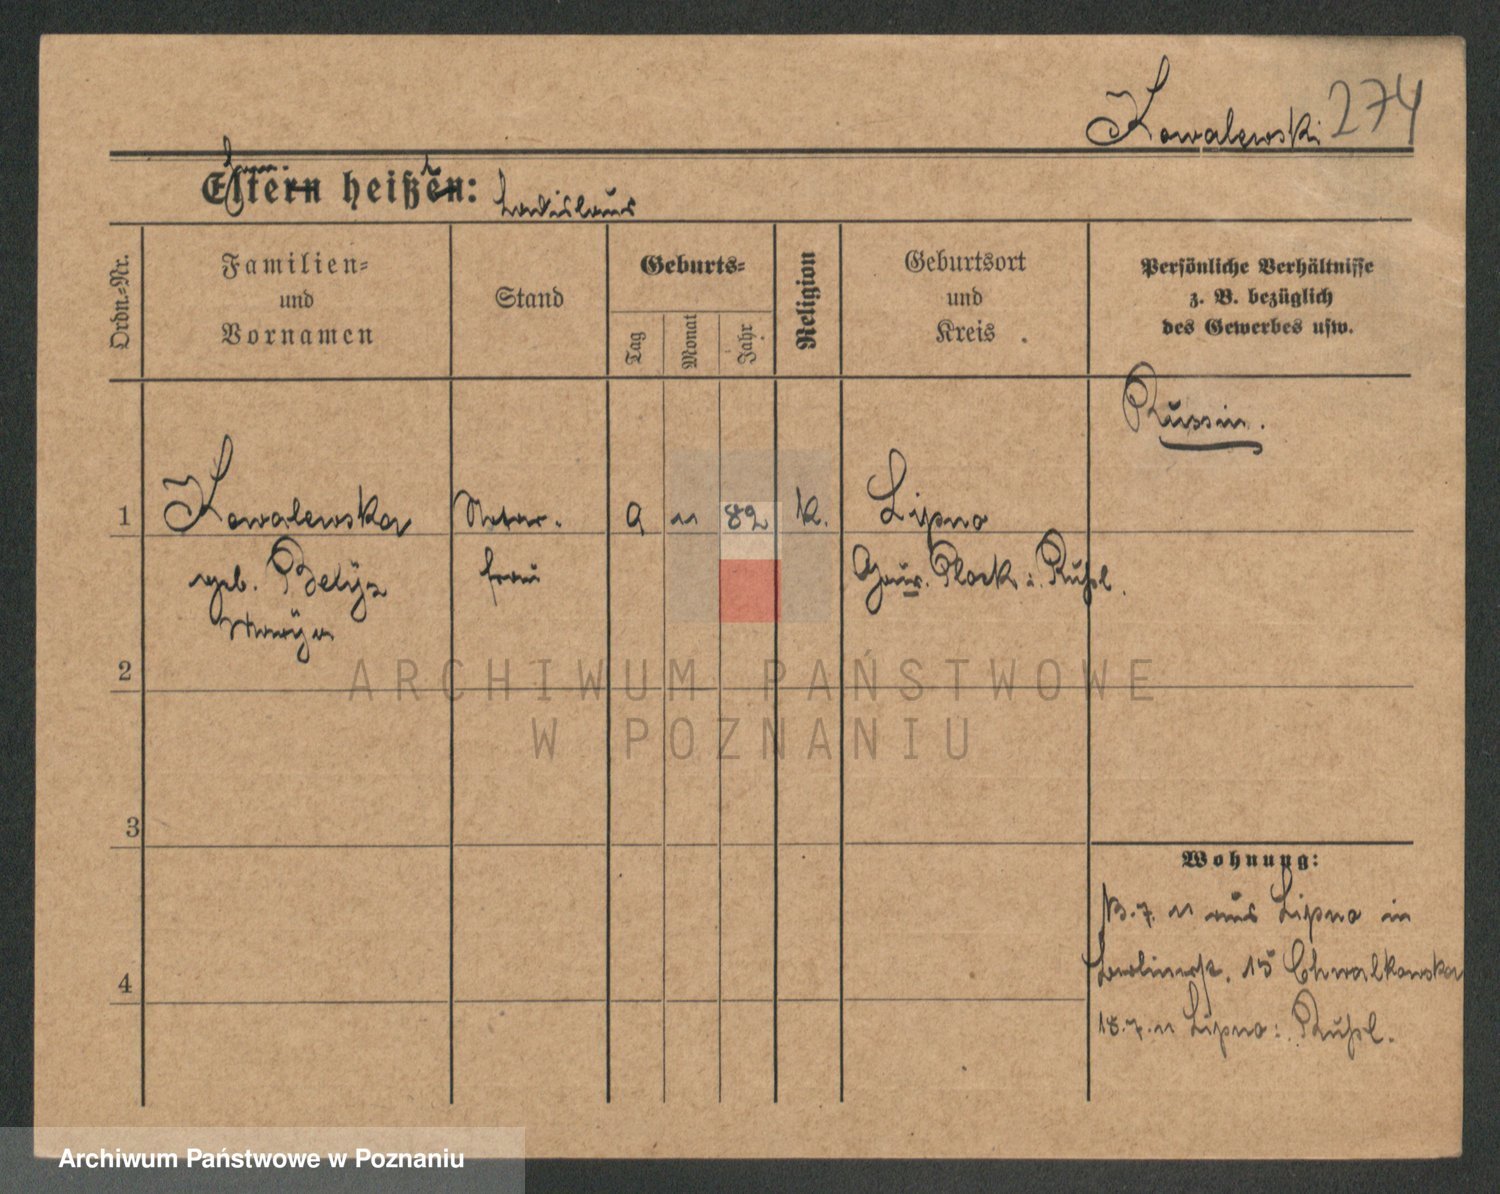 Kowalewski 274
Eltern heißen: Ladislaus
Ordn.-Nr.
Familien-
und
Vornamen
Stand
Geburts-
Tag
Monat
Jahr
Religion
Geburtsort
und
Kreis
Persönliche Verhältnisse
z. B. bezüglich
des Gewerbes usw.
Russin.
1 Kowalewska Notar. 9 11 82 k. Lipno
geb. Betÿz frau Gouv. Plock i. Rußl.
Marÿa
2
3
4
Wohnung:
13.7.11 aus Lipno in
15 Chwalkowska
18.7.11 Lipno i. Rußl.
ARCHIWUM PAŃSTWOWE
W POZNANIU
Archiwum Państwowe w Poznaniu